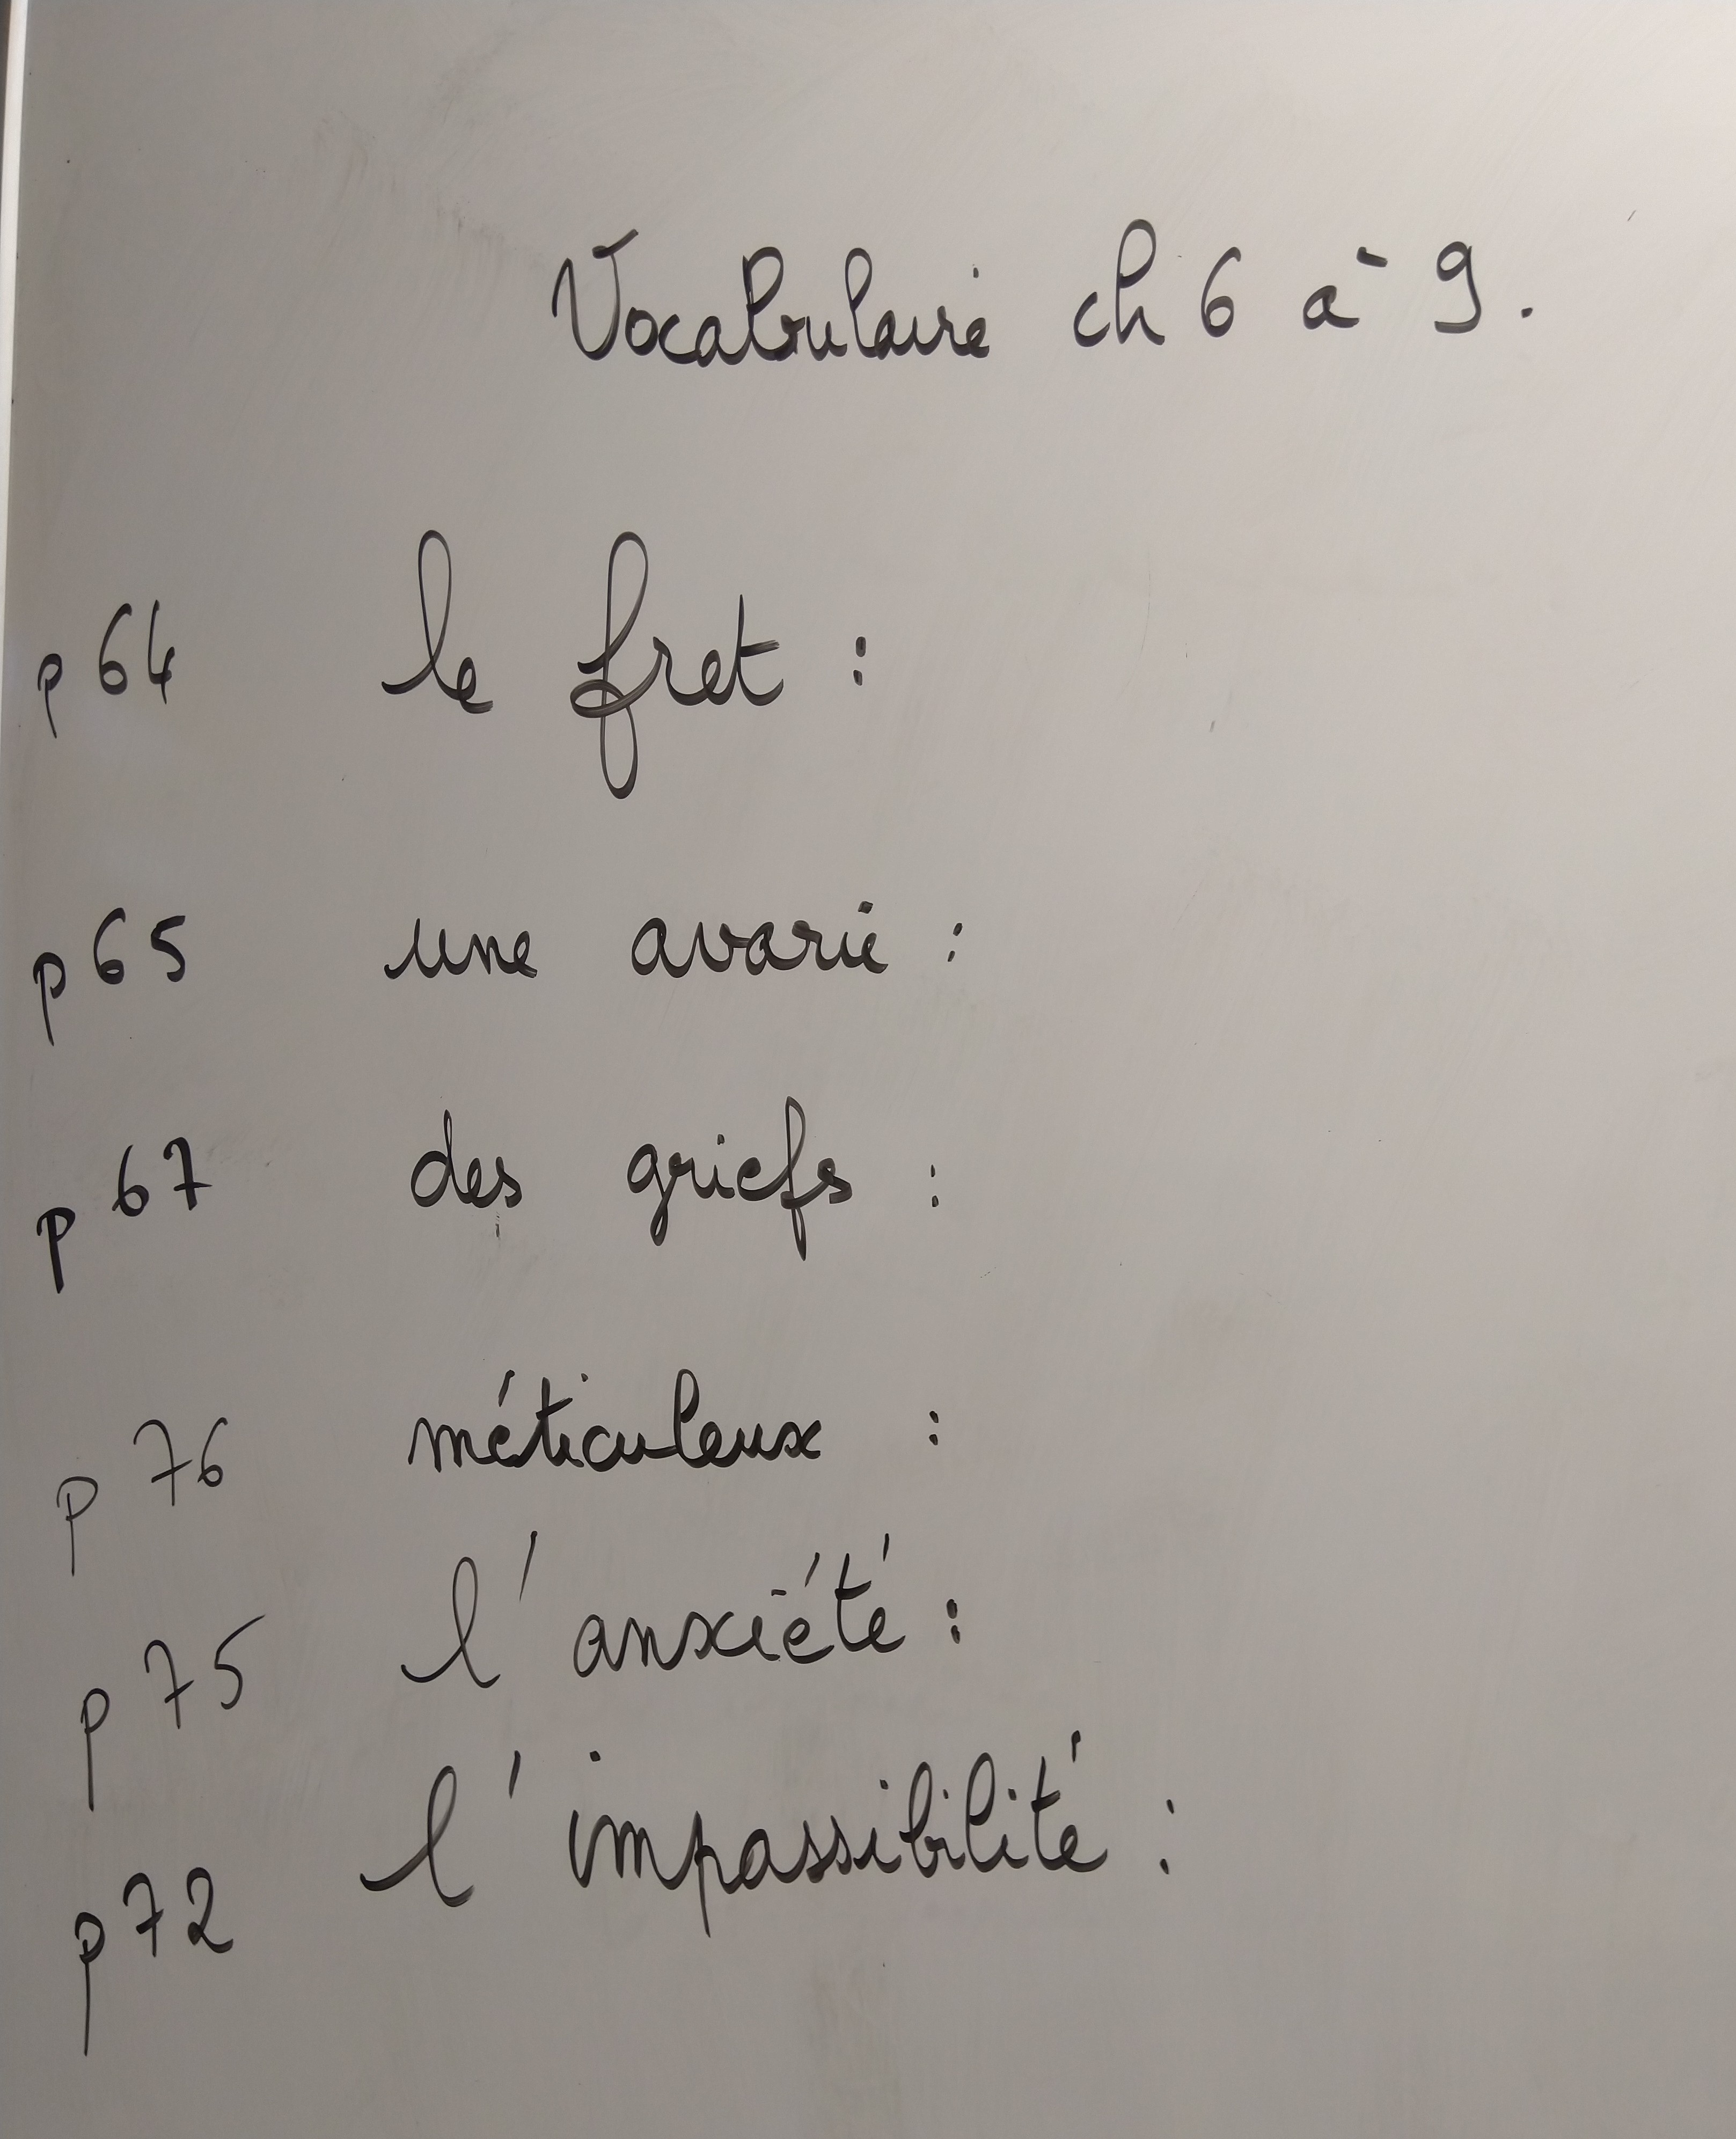 Vocabulaire ch 6 à 9.
p 64 le fret :
p 65 une avarie :
p 67 des griefs :
p 76 méticuleux :
p 75 l'anxiété :
p 72 l'impassibilité :